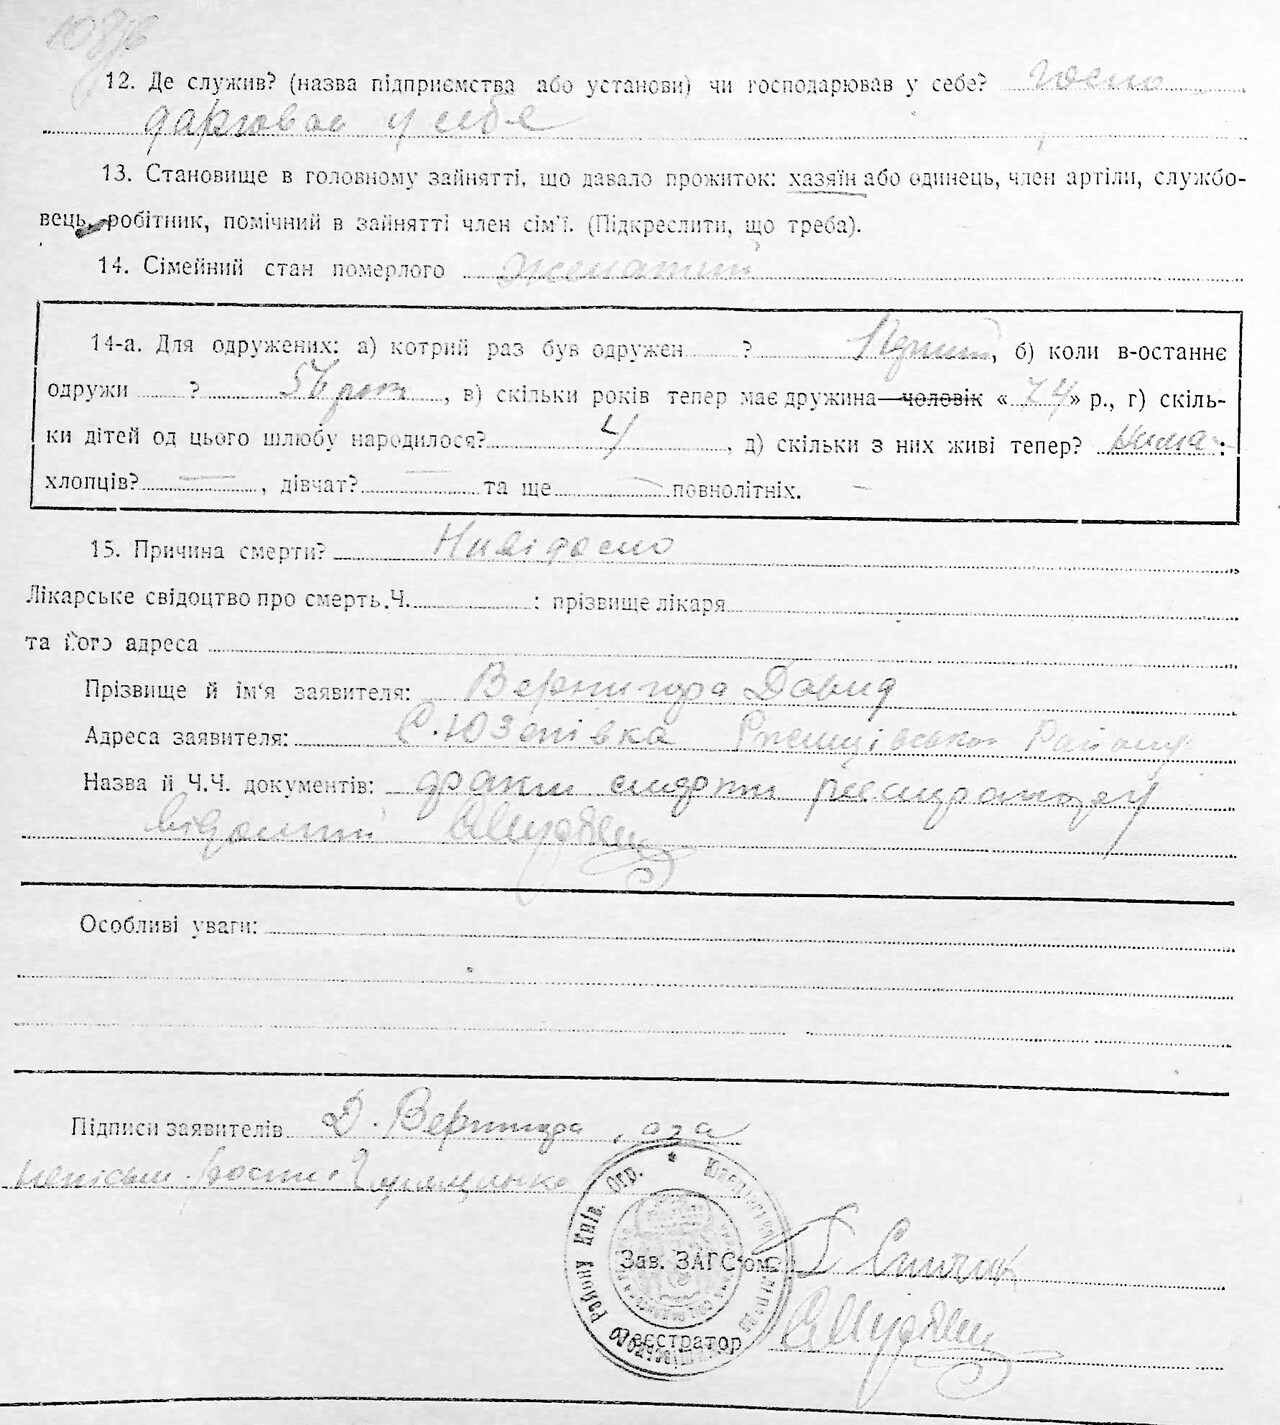 12. Де служив? (назва підприємства або установи) чи господарював у себе? госпо
дарював у себе
13. Становище в головному зайнятті, що давало прожиток: хазяїн або одинець, член артіли, службо-
вець, робітник, помічний в зайнятті член сім'ї. (Підкреслити, що треба).
14. Сімейний стан померлого женатий
14-а. Для одружених: а) котрий раз був одружен ? 1 Перший, б) коли в-останнє
одружи ? 56 рок, в) скільки років тепер має дружина чоловік « 74 » р., г) скіль-
ки дітей од цього шлюбу народилося? 4, д) скільки з них живі тепер? нима :
хлопців? —, дівчат? — та ще — повнолітніх. —
15. Причина смерти? Нивідомо
Лікарське свідоцтво про смерть.Ч. : прізвище лікаря
та його адреса
Прізвище й ім'я заявителя: Вернигора Давид
Адреса заявителя: С. Юзепівка Ржищівського Району
Назва й Ч.Ч. документів: факт смерти реєстратору
відомий
Особливі уваги:
Підписи заявителів Д. Вернигора, а за
неписьм. росп.
Зав. ЗАГС'ом
Реєстратор
Району Київ. Окр. *